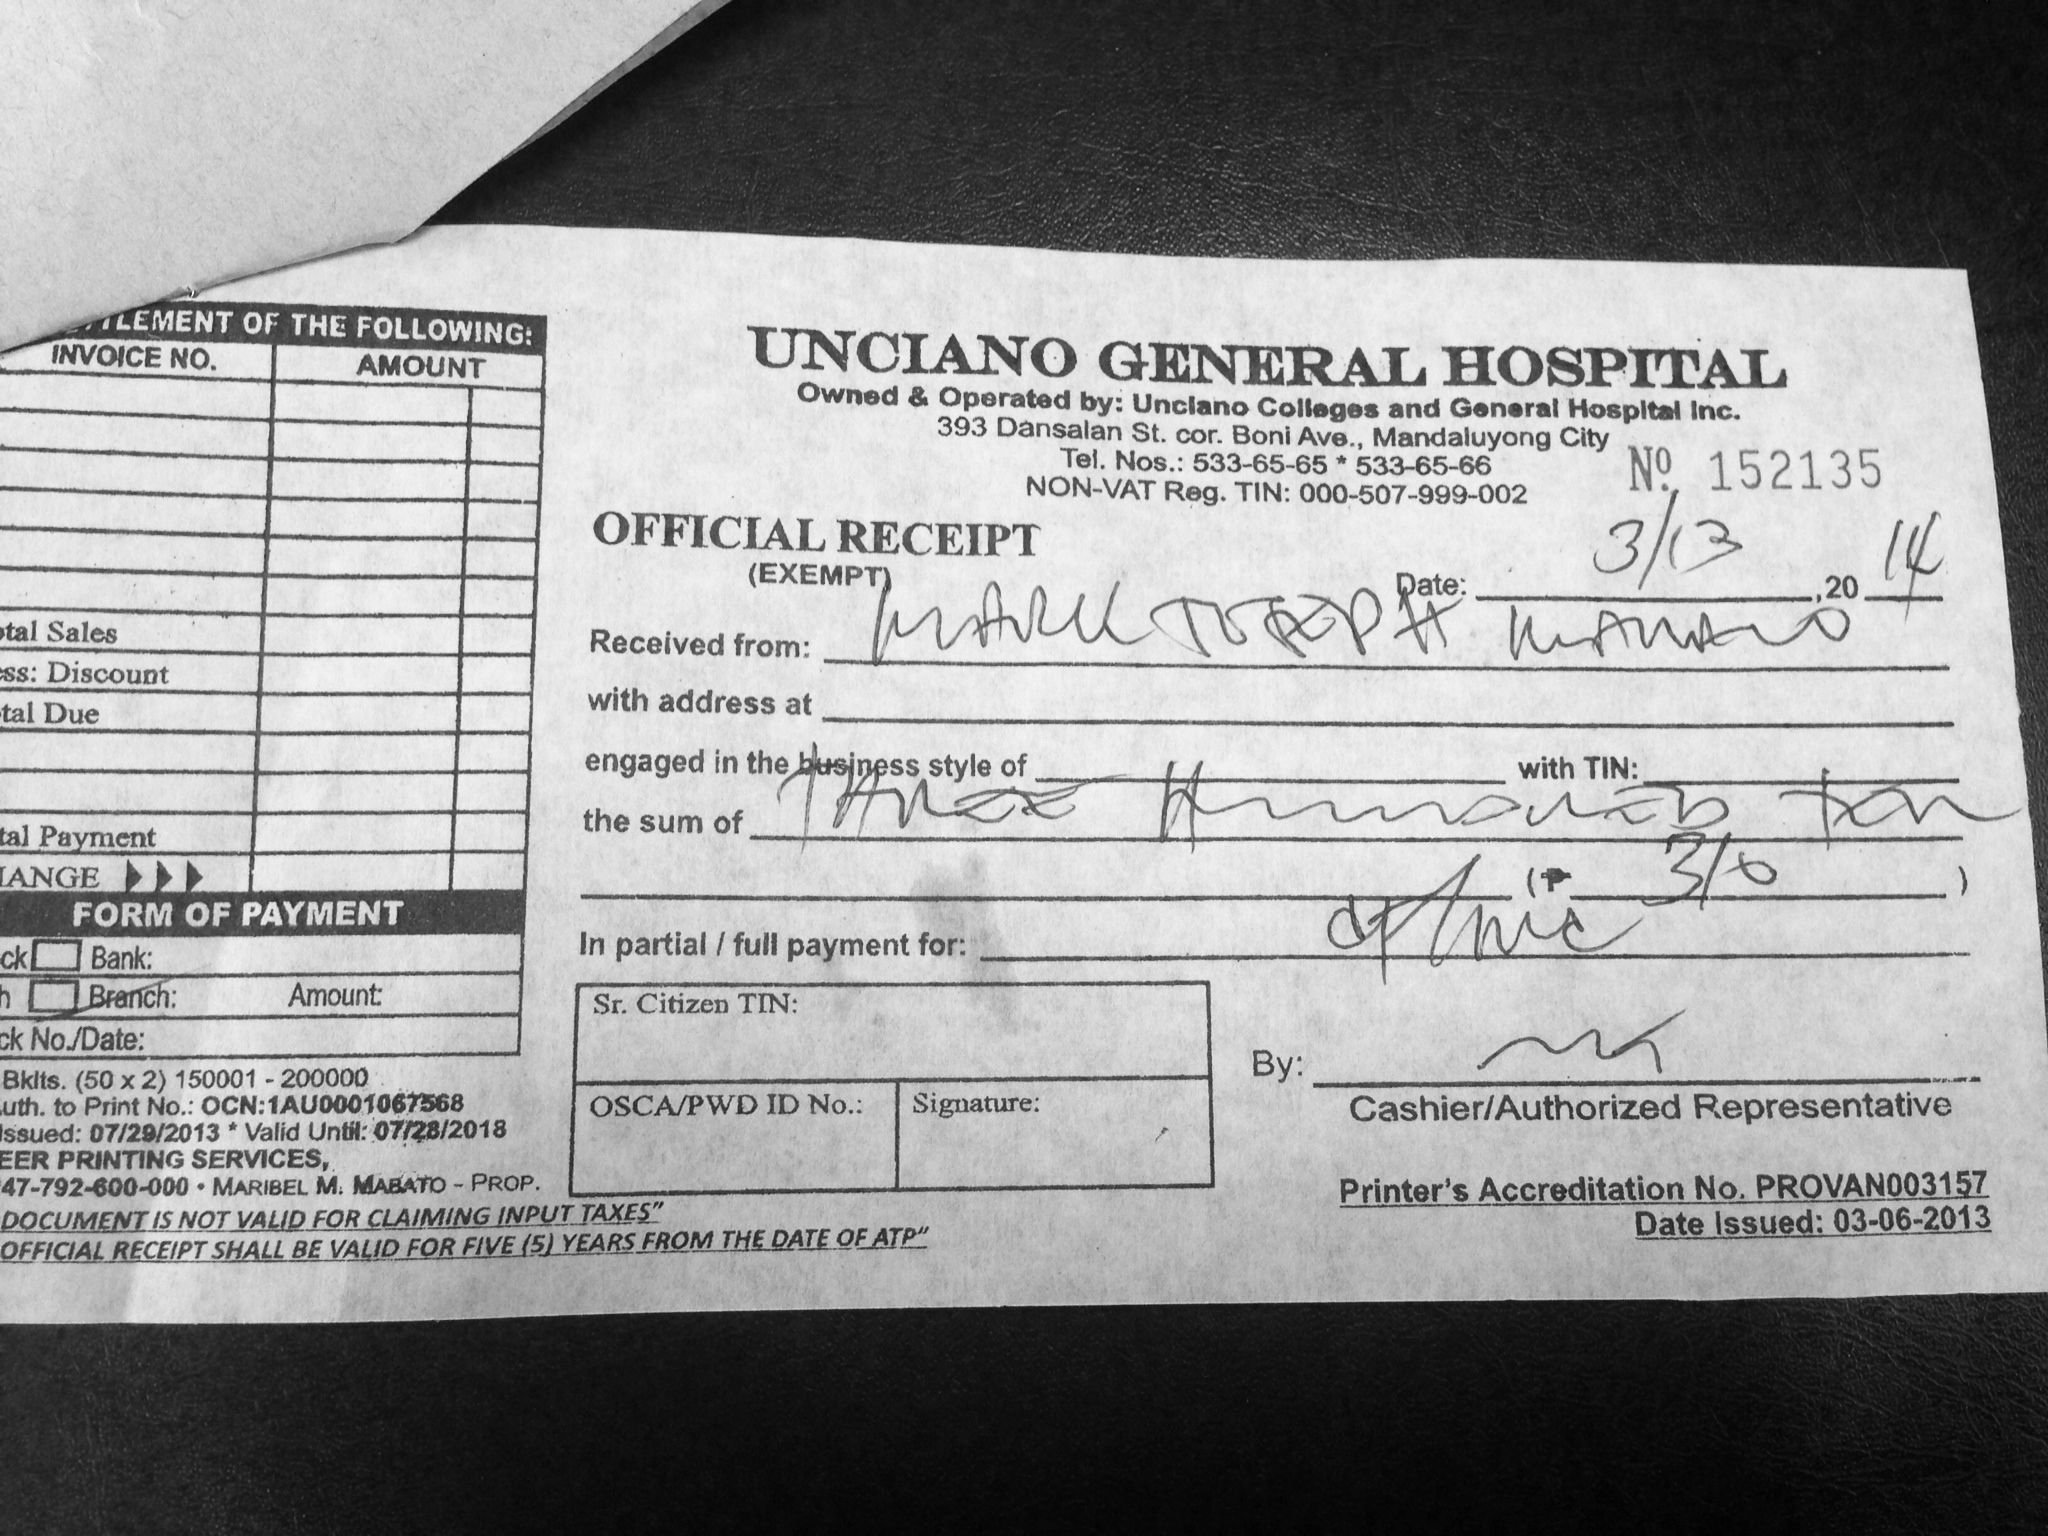 TLEMENT OF THE FOLLOWING:
INVOICE NO. AMOUNT
otal Sales
ess: Discount
otal Due
tal Payment
HANGE
FORM OF PAYMENT
ck Bank:
h Branch: Amount:
ck No./Date:
Bklts. (50 x 2) 150001 - 200000
uth. to Print No.: OCN:1AU0001067568
Issued: 07/29/2013 * Valid Until: 07/28/2018
EER PRINTING SERVICES,
47-792-600-000 • MARIBEL M. MABATO - PROP.
DOCUMENT IS NOT VALID FOR CLAIMING INPUT TAXES"
OFFICIAL RECEIPT SHALL BE VALID FOR FIVE (5) YEARS FROM THE DATE OF ATP"
UNCIANO GENERAL HOSPITAL
Owned & Operated by: Unciano Colleges and General Hospital Inc.
393 Dansalan St. cor. Boni Ave., Mandaluyong City
Tel. Nos.: 533-65-65 * 533-65-66
NON-VAT Reg. TIN: 000-507-999-002
Nº 152135
OFFICIAL RECEIPT
(EXEMPT)
Date: 3/13, 20 14
Received from: MARK JOSEPH
with address at
engaged in the business style of with TIN:
the sum of THREE HUNDRED TEN
(₱ 310 )
In partial / full payment for:
Sr. Citizen TIN:
OSCA/PWD ID No.: Signature:
By:
Cashier/Authorized Representative
Printer's Accreditation No. PROVAN003157
Date Issued: 03-06-2013